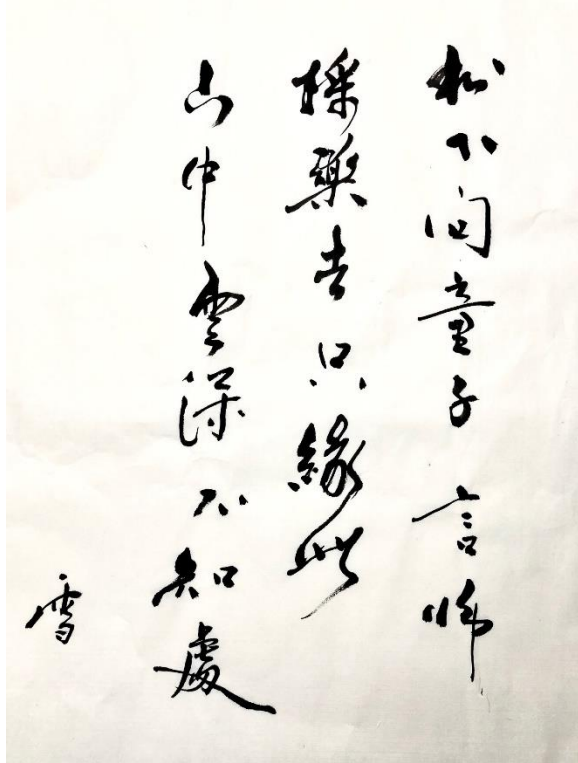 松下问童子言師
採藥去只緣此
山中雲深不知處
雪